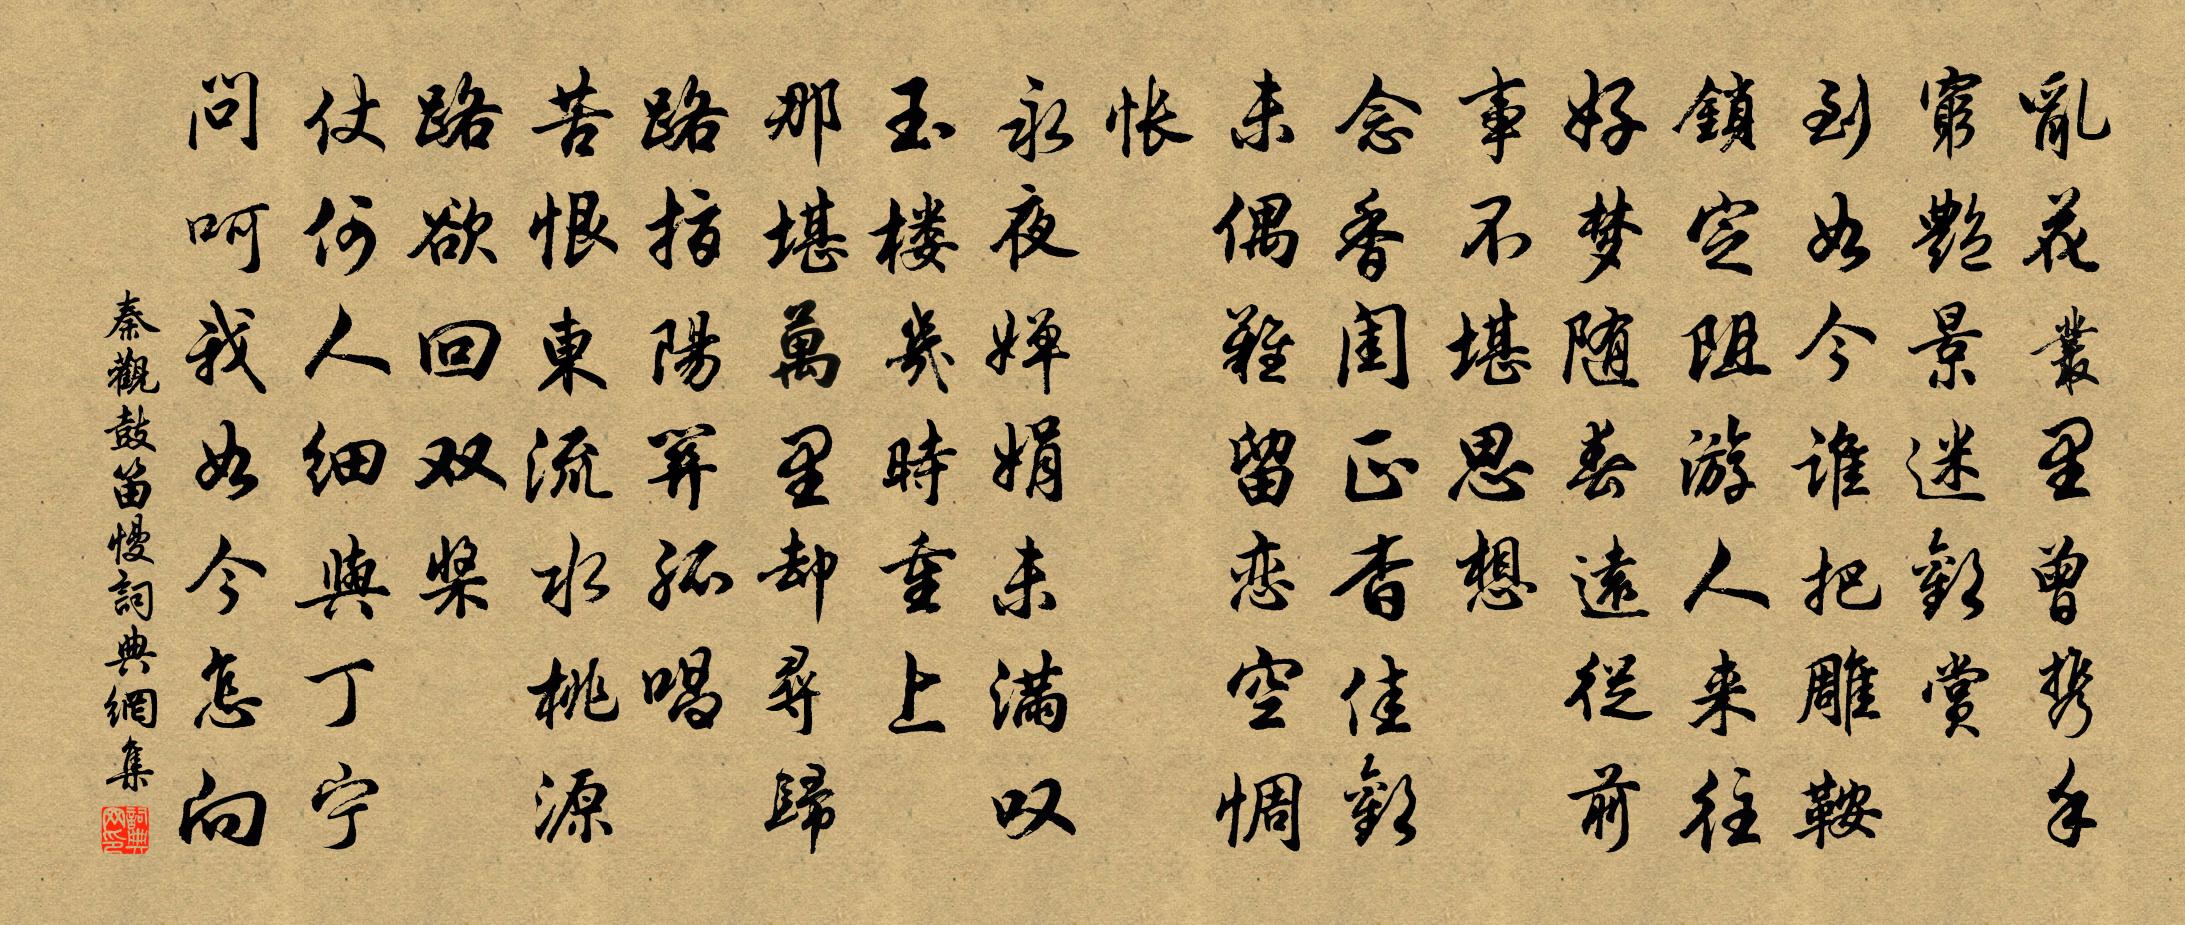 亂花叢里曾携手
窮艷景迷歡賞
到如今谁把雕鞍
鎖定阻游人来往
好梦随春遠從前
事不堪思想
念香闺正杳佳歡
未偶難留恋空惆
怅
永夜婵娟未满叹
玉楼幾時重上
那堪萬里却尋歸
路指陽関孤唱
苦恨東流水桃源
路欲回双桨
仗何人细與丁宁
问呵我如今怎向
秦觀鼓笛慢詞典網集
詞典网印